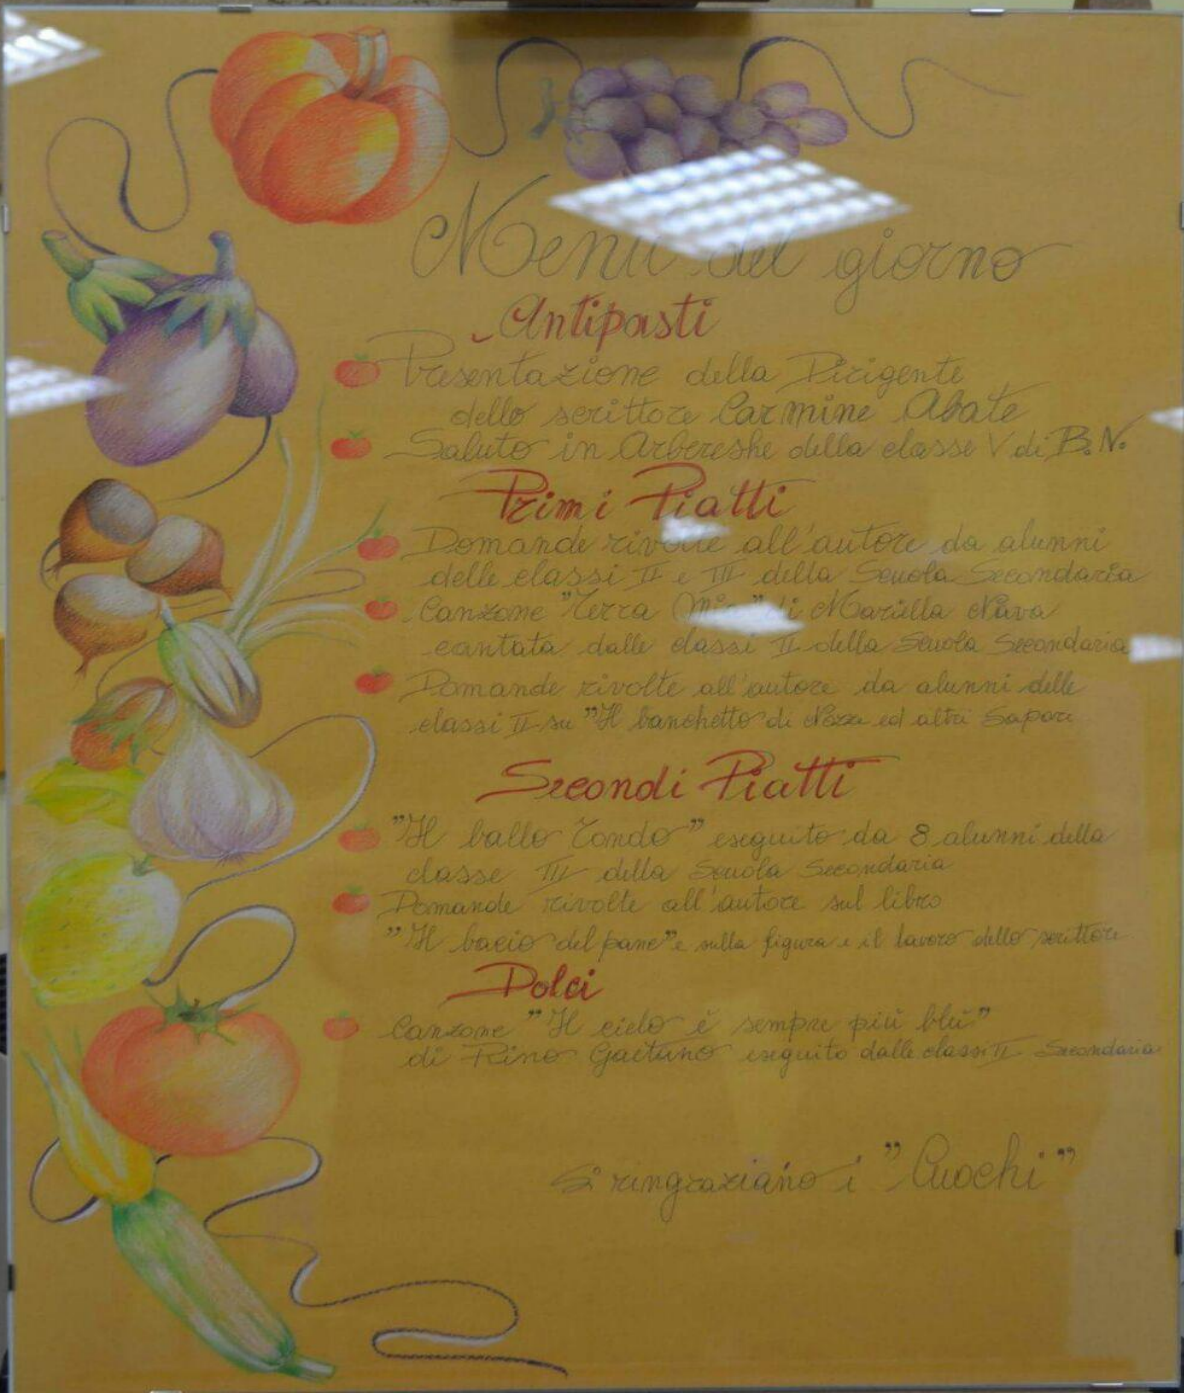 Menù del giorno
Antipasti
Presentazione della Dirigente
dello scrittore Carmine Abate
Saluto in Arbereshe della classe V di B.N.
Primi Piatti
Domande rivolte all'autore da alunni
delle classi II e III della Scuola Secondaria
Canzone "Terra Mia" di Mariella Nava
cantata dalle classi II della Scuola Secondaria
Domande rivolte all'autore da alunni delle
classi II su "Il banchetto di Nozze ed altri Sapori
Secondi Piatti
"Il ballo Tondo" eseguito da 8 alunni della
classe III della Scuola Secondaria
Domande rivolte all'autore sul libro
"Il bacio del pane" e sulla figura e il lavoro dello scrittore
Dolci
Canzone "Il cielo è sempre più blu"
di Rino Gaetano eseguito dalle classi II Secondaria
Si ringraziano i "Cuochi"